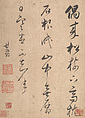 偶来松樹下高枕
石頭眠山中無曆
日寒盡不知年